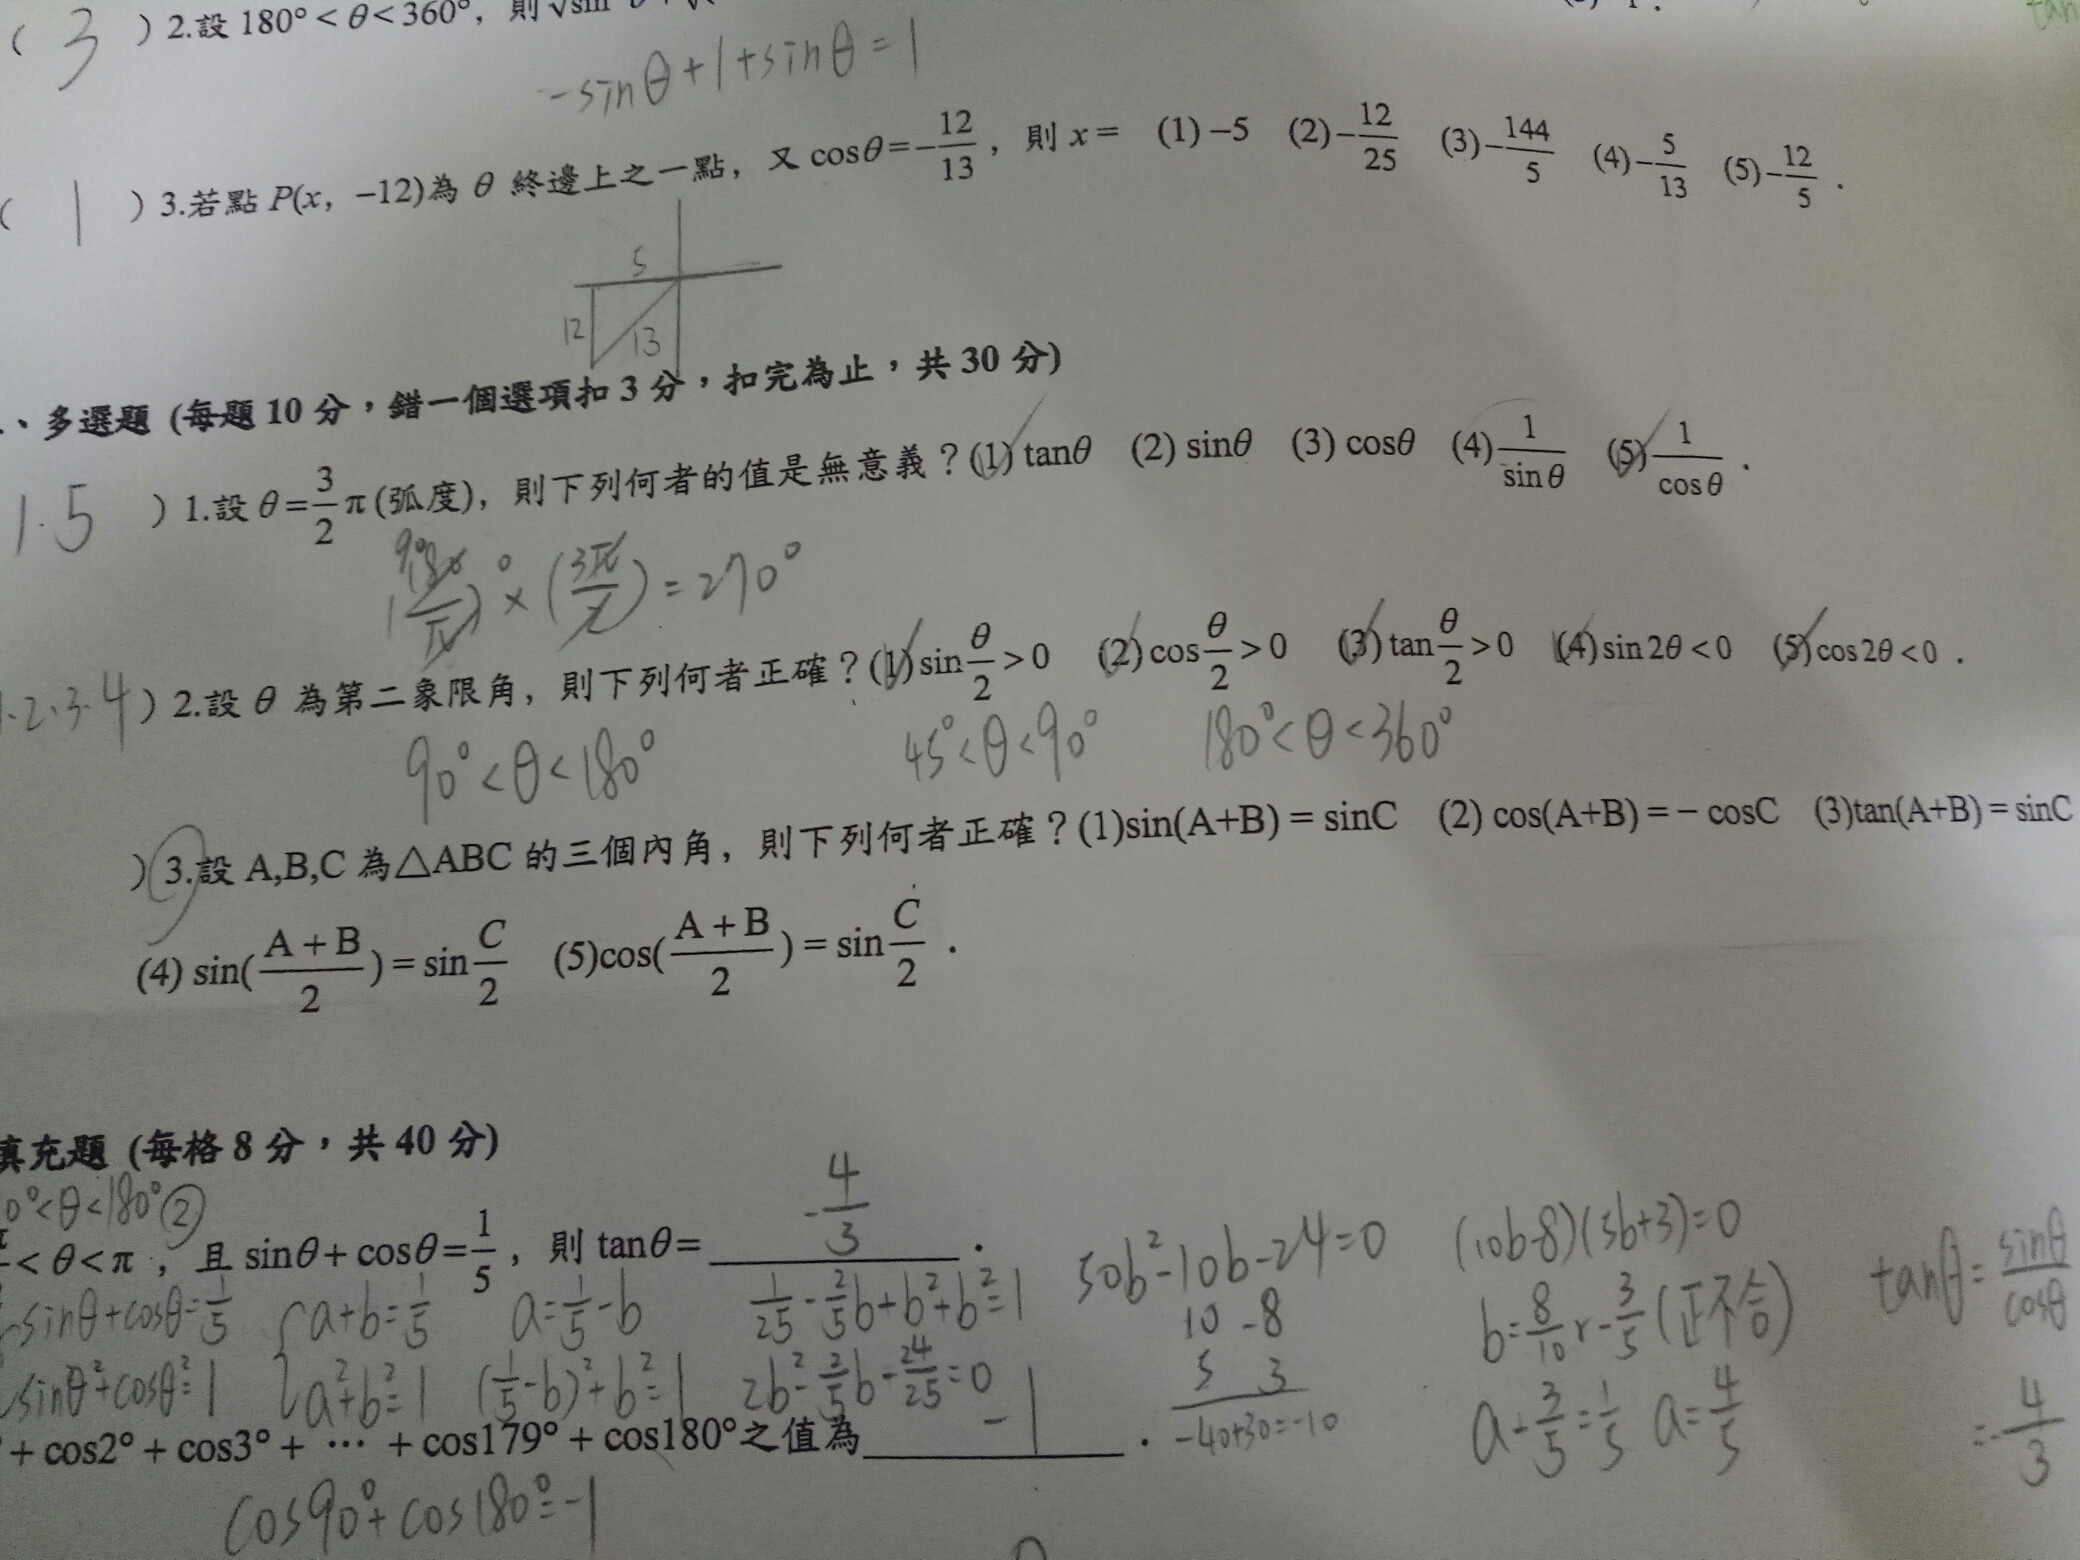 ( 3 ) 2.設 180° < θ < 360°, 則 √sin
-sinθ+1+sinθ=1
( 1 ) 3.若點 P(x, -12)為 θ 終邊上之一點, 又 cosθ=-12/13, 則 x= (1) -5 (2) -12/25 (3) -144/5 (4) -5/13 (5) -12/5 .
5
12 13
、多選題 (每題 10 分，錯一個選項扣 3 分，扣完為止，共 30 分)
1.5 ) 1.設 θ=3/2 π (弧度), 則下列何者的值是無意義？(1) tanθ (2) sinθ (3) cosθ (4) 1/sinθ (5) 1/cosθ .
(180/π)° × (3π/2) = 270°
1.2.3.4 ) 2.設 θ 為第二象限角, 則下列何者正確？(1) sin θ/2 > 0 (2) cos θ/2 > 0 (3) tan θ/2 > 0 (4) sin 2θ < 0 (5) cos 2θ < 0 .
90° < θ < 180° 45° < θ < 90° 180° < θ < 360°
) 3.設 A,B,C 為△ABC 的三個內角, 則下列何者正確？(1)sin(A+B) = sinC (2) cos(A+B) = - cosC (3)tan(A+B) = sinC
(4) sin((A + B)/2) = sin C/2 (5)cos((A + B)/2) = sin C/2 .
填充題 (每格 8 分，共 40 分)
0°<θ<180° ②
< θ < π , 且 sinθ + cosθ = 1/5 , 則 tanθ= -4/3 .
50b²-10b-24=0 (10b-8)(5b+3)=0 tanθ=sinθ/cosθ
sinθ+cosθ=1/5 a+b=1/5 a=1/5-b 1/25-2/5b+b²+b²=1 10 -8 b=8/10 r -3/5 (正不合)
sinθ²+cosθ²=1 a²+b²=1 (1/5-b)²+b²=1 2b²-2/5b-24/25=0 5 3 a-3/5=1/5 a=4/5 =-4/3
-40+30=-10
+ cos2° + cos3° + ⋯ + cos179° + cos180°之值為 -1 .
cos90°+cos180°=-1